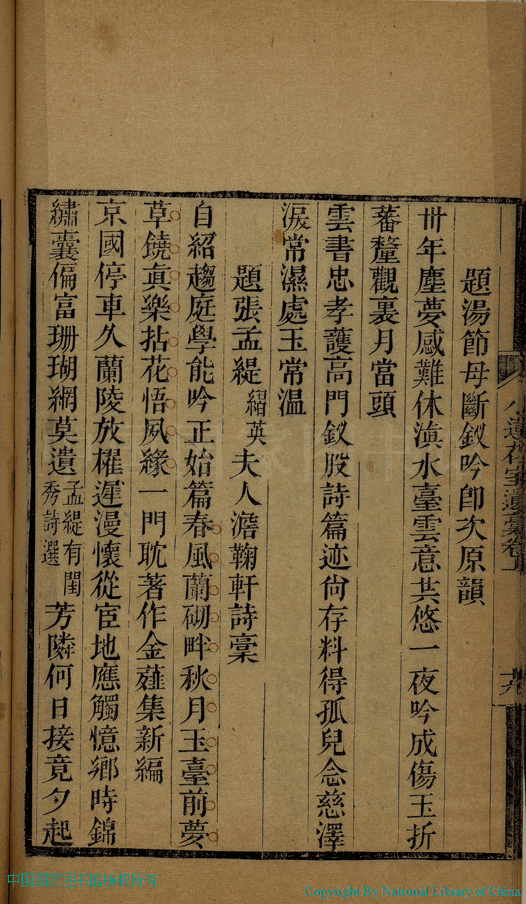 題湯節母斷釵吟卽次原韻
卅年塵夢感難休滇水臺雲意共悠一夜吟成傷玉折
蕃釐觀裏月當頭
雲書忠孝護高門釵股詩篇迹尙存料得孤兒念慈澤
淚常濕處玉常温
題張孟緹䌖英夫人澹鞠軒詩稾
自紹趨庭學能吟正始篇春風蘭砌畔秋月玉臺前夢
草饒眞樂拈花悟夙緣一門耽著作金薤集新編
京國停車久蘭陵放櫂遲漫懷從宦地應觸憶鄉時錦
繡囊偏富珊瑚網莫遺孟緹有閨秀詩選芳隣何日接竟夕起
中国国家图书馆版权所有
Copyright By National Library of China